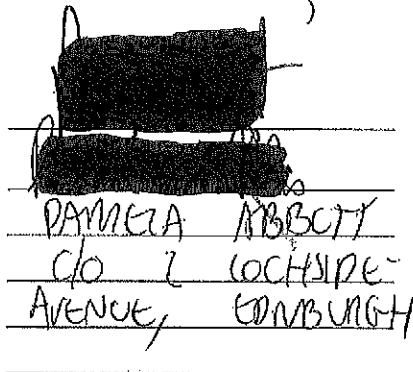 PAMELA ABBOTT
C/O 2 LOCHSIDE
AVENUE, EDINBURGH